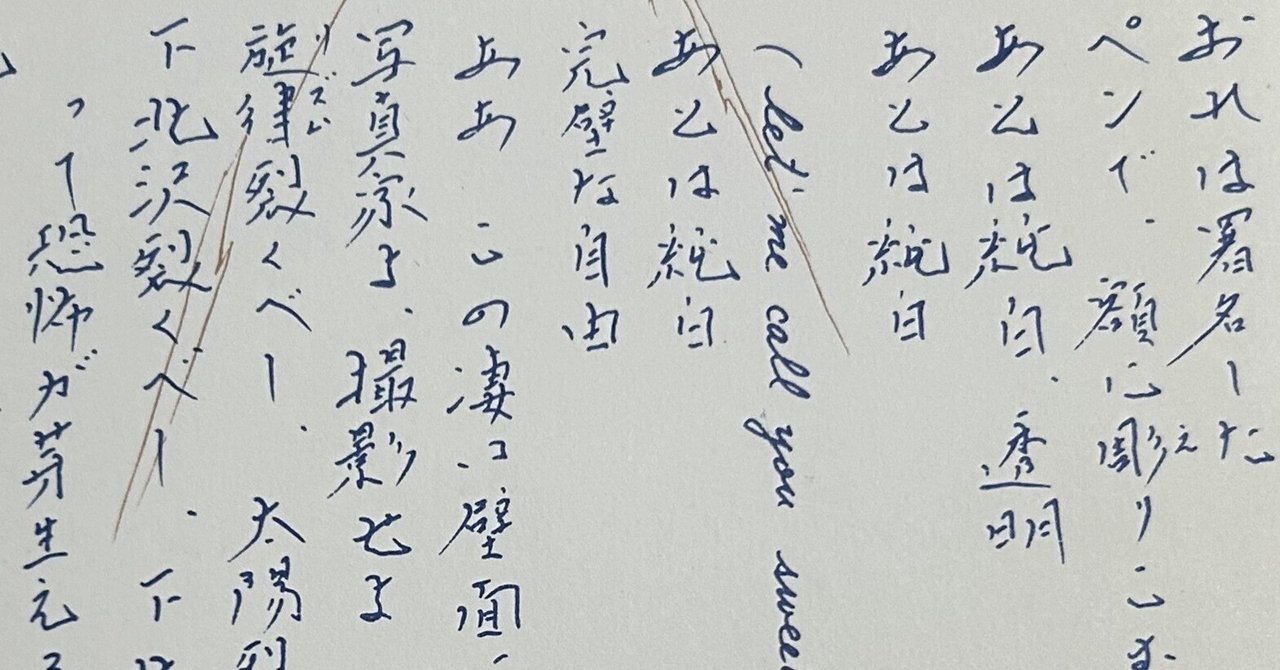 おれは署名した
ペンで、額に彫りこま
あとは純白、透明
あとは純白
(let' me call you swee
あとは純白
完璧な自由
ああ この凄い壁面、
写真家よ、撮影せよ
旋律裂くべし、太陽裂
リズム
下北沢裂くべし、下北
恐怖が芽生え